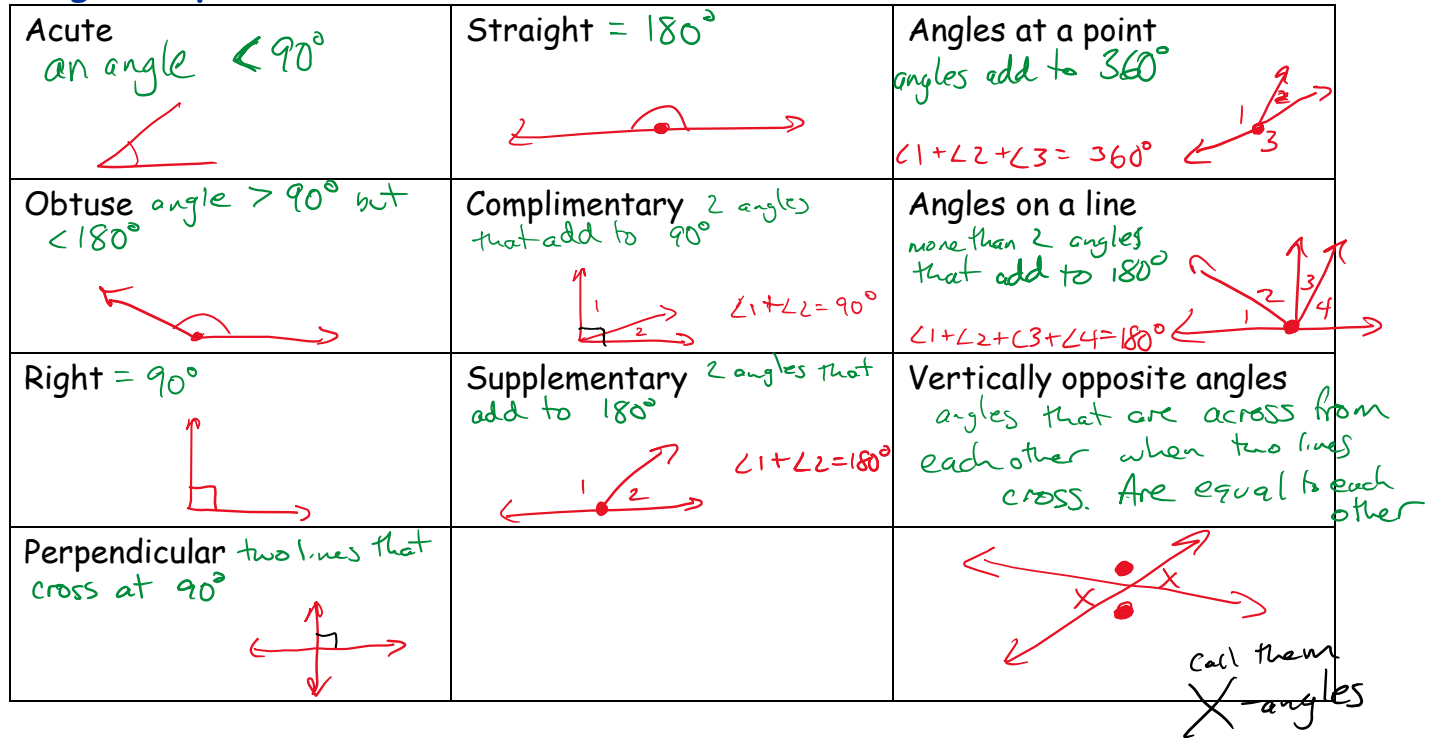 Acute
an angle < 90°
Straight = 180°
Angles at a point
angles add to 360°
1 2
3
∠1+∠2+∠3 = 360°
Obtuse angle > 90° but
< 180°
Complimentary 2 angles
that add to 90°
1
2
∠1+∠2=90°
Angles on a line
more than 2 angles
that add to 180°
1 2 3 4
∠1+∠2+∠3+∠4=180°
Right = 90°
Supplementary 2 angles that
add to 180°
1 2
∠1+∠2=180°
Vertically opposite angles
angles that are across from
each other when two lines
cross. Are equal to each
other
Perpendicular two lines that
cross at 90°
x x
call them
X-angles